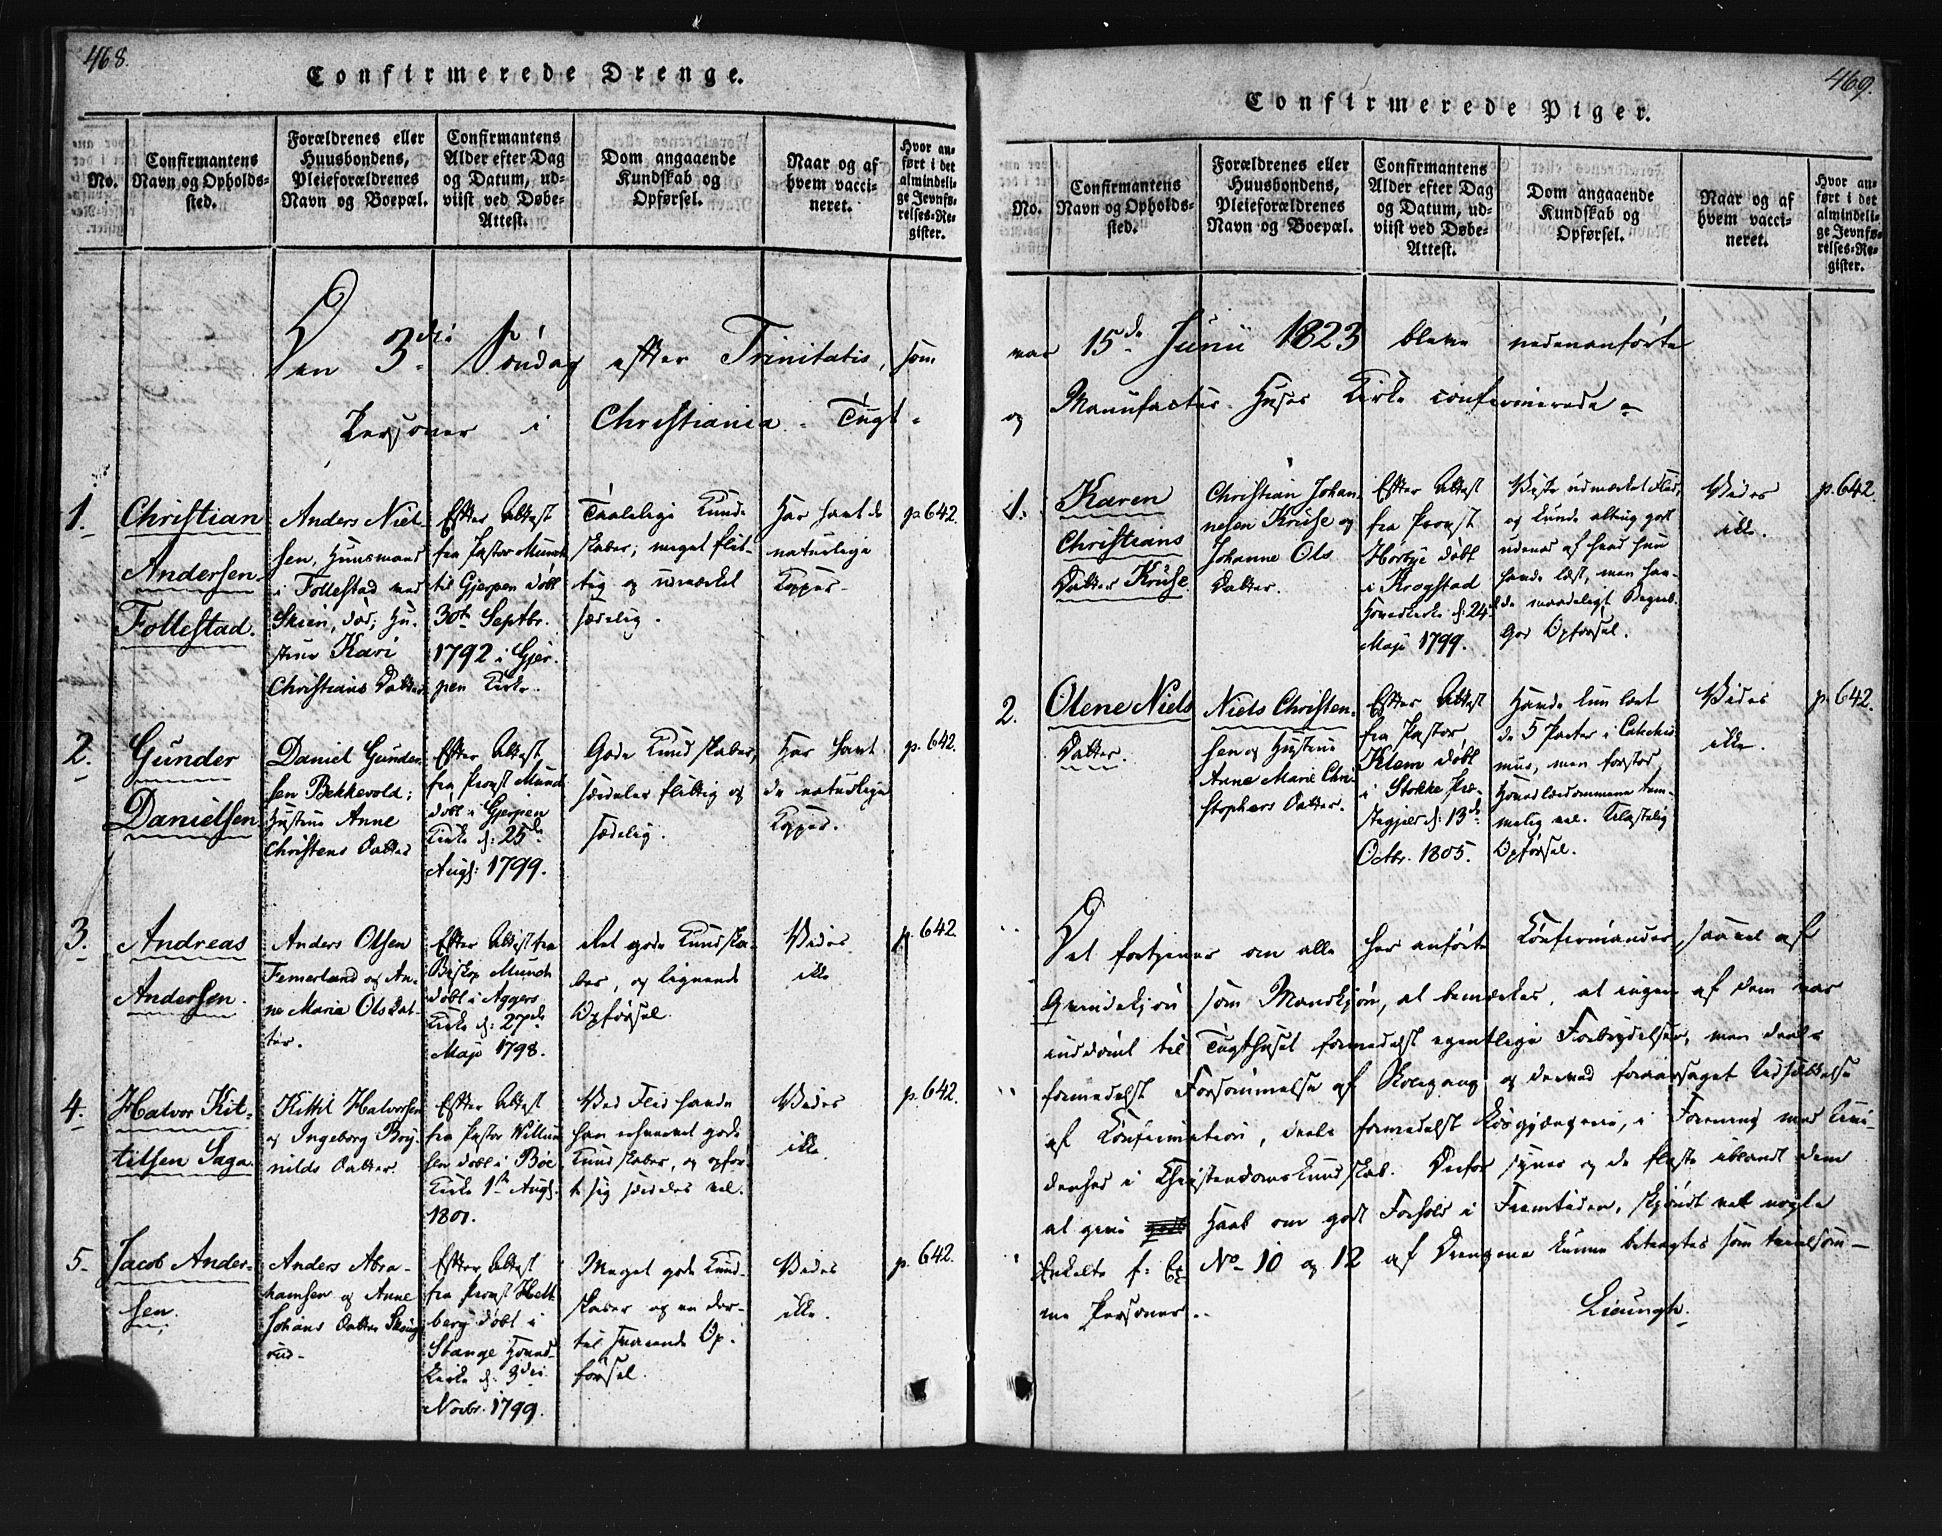 468.
Confirmerede Drenge.
No.
Confirmantens
Navn og Opholds-
sted.
Forældrenes eller
Huusbondens,
Pleieforældrenes
Navn og Boepæl.
Confirmantens
Alder efter Dag
og Datum, ud-
viist ved Døbe-
Attest.
Dom angaaende
Kundskab og
Opførsel.
Naar og af
hvem vacci-
neret.
Hvor an-
ført i det
almindeli-
ge Jevnfø-
relses-Re-
gister.
Den 3die Søndag efter Trinitatis, som
Personer i Christiania Tugt-
1.
Christian
Andersen
Follestad.
Anders Niel-
sen, Huusmand
i Follestad ved
Skien, død; Hu-
strue Kari
Christians Datter
Efter Attest
fra Pastor Munch
til Gjerpen døbt
30te Septbr.
1792 i Gjer-
pen Kirke.
Taalelige Kund-
skaber; meget flit-
tig og udmærket
sædelig.
Har havt de
naturlige
Kopper.
p 642.
2.
Gunder
Danielsen
Daniel Gunder-
sen Bekkevold;
Hustrue Anne
Christens Datter
Efter Attest
fra Provst Munch
døbt i Gjerpen
Kirke d: 25de
Augs: 1799.
Gode Kundskaber,
særdeles flittig og
sædelig.
Har havt
de naturlige
Kopper.
p. 642.
3.
Andreas
Andersen.
Anders Olsen
Femerland og An-
ne Maria Olsdat-
ter.
Efter Attest fra
Biskop Munch
døbt i Aggers
Kirke d: 27de
Maji 1798.
Ret gode Kundska-
ber, og lignende
Opførsel.
Vides
ikke
p. 642.
4.
Halvor Kit-
tilsen Saga.
Kittil Halvorsen
og Ingeborg Bry-
nilds Datter.
Efter Attest
fra Pastor Willum-
sen døbt i Bøe
Kirke 1ste Augs.
1801.
Ved Flid havde
han erhvervet gode
Kundskaber, og opfør-
te sig særdeles vel.
Vides
ikke.
p. 642.
5.
Jacob Ander-
sen.
Anders Abra-
hamsen og Anne
Johans Datter
Efter Attest
fra Provst
berg døbt i
Stange Hoved-
kirke d: 3die
Novbr. 1799.
Meget gode Kund-
skaber og en der-
til svarende Op-
førsel.
Vides
ikke.
p. 642.
469.
Confirmerede Piger.
No.
Confirmantens
Navn og Opholds-
sted.
Forældrenes eller
Huusbondens,
Pleieforældrenes
Navn og Boepæl.
Confirmantens
Alder efter Dag
og Datum, ud-
viist ved Døbe-
Attest.
Dom angaaende
Kundskab og
Opførsel.
Naar og af
hvem vacci-
neret.
Hvor an-
ført i det
almindeli-
ge Jevnfø-
relses-Re-
gister.
var 15de Junii 1823 bleve nedenanførte
og Manufactur Huses Kirke confirmerede
1.
Karen
Christians
Datter Kruse.
Christian Johan-
nesen Kruse og
Johanne Ols
Datter.
Efter Attest
fra Provst
Horbye døbt
i Krogstad
Hovedkirke d: 24de
Maji 1799.
Viste udmærket Flid,
og kunde alting godt
udenad af hvad hun
havde læst, men hav-
de maadeligt Begreb.
God Opførsel.
Vides
ikke.
p. 642.
2.
Olene Niels
Datter.
Niels Christen-
sen og Hustrue
Anne Marie Chri-
stophers Datter.
Efter Attest
fra Pastor
Klem døbt
i Stokke Præ-
stegjeld d: 13de
Octbr. 1805.
Havde kun lært
de 5 Parter i Catechis-
mus, men forstod
Hovedlærdommene tem-
melig vel. Ulastelig
Opførsel.
Vides
ikke.
p. 642.
Det fortjener om alle her anførte Confirmander, saavel af
Qvindekjøn som Mandkjøn, at bemærkes, at ingen af dem var
inddømt til Tugthuset formedelst egentlige Forbrydelser, men deels
formedelst Forsømmelse af Skolegang og derved foraarsaget Udsættelse
af Confirmation, deels formedelst Løsgjængerie, i Forening med Uvi-
denhed i Christendomskundskab. Derfor synes og de fleste iblandt dem
at give Haab om godt Forhold i Fremtiden, skjøndt vel nogle
Enkelte f: Ex No 10 og 12 af Drengene kunne betragtes som tvivlsom-
me Personer.
Lieungh.